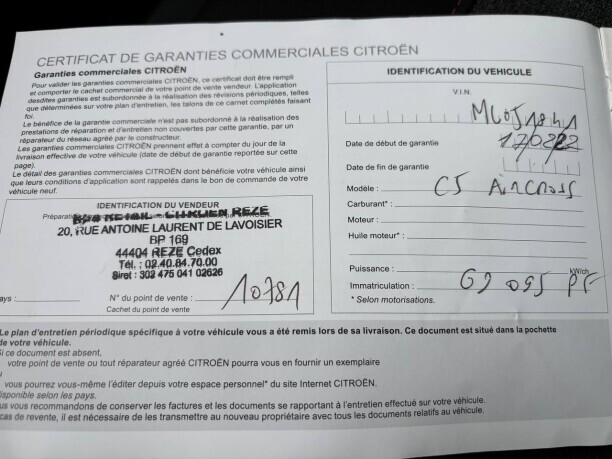 CERTIFICAT DE GARANTIES COMMERCIALES CITROËN
Garanties commerciales CITROËN
Pour valider les garanties commerciales CITROËN, ce certificat doit être rempli
et comporter le cachet commercial de votre point de vente vendeur. L'application
desdites garanties est subordonnée à la réalisation des révisions périodiques, telles
que déterminées sur votre plan d'entretien, les talons de ce carnet complétés faisant
foi.
Le bénéfice de la garantie commerciale n'est pas subordonné à la réalisation des
prestations de réparation et d'entretien non couvertes par cette garantie, par un
réparateur du réseau agréé par le constructeur.
Les garanties commerciales CITROËN prennent effet à compter du jour de la
livraison effective de votre véhicule (date de début de garantie reportée sur cette
page).
Le détail des garanties CITROËN dont bénéficie votre véhicule ainsi
que leurs conditions d'application sont rappelés dans le bon de commande de votre
véhicule neuf.
IDENTIFICATION DU VENDEUR
REZE
20, RUE ANTOINE LAURENT DE LAVOISIER
BP 169
44404 REZE Cedex
Tél. : 02.40.84.70.00
Siret : 302 475 041 02626
ays :
N° du point de vente : 10781
Cachet du point de vente
IDENTIFICATION DU VÉHICULE
V.I.N.
Date de début de garantie
Date de fin de garantie
Modèle : C5 AIRCROSS
Carburant* :
Moteur :
Huile moteur* :
Puissance : kW/ch
Immatriculation : G9 095 PF
* Selon motorisations.
Le plan d'entretien périodique spécifique à votre véhicule vous a été remis lors de sa livraison. Ce document est situé dans la pochette
de votre véhicule.
Si ce document est absent,
votre point de vente ou tout réparateur agréé CITROËN pourra vous en fournir un exemplaire
u
vous pourrez vous-même l'éditer depuis votre espace personnel* du site Internet CITROËN.
isponible selon les pays.
us vous recommandons de conserver les factures et les documents se rapportant à l'entretien effectué sur votre véhicule.
cas de revente, il est nécessaire de les transmettre au nouveau propriétaire avec tous les documents relatifs au véhicule.